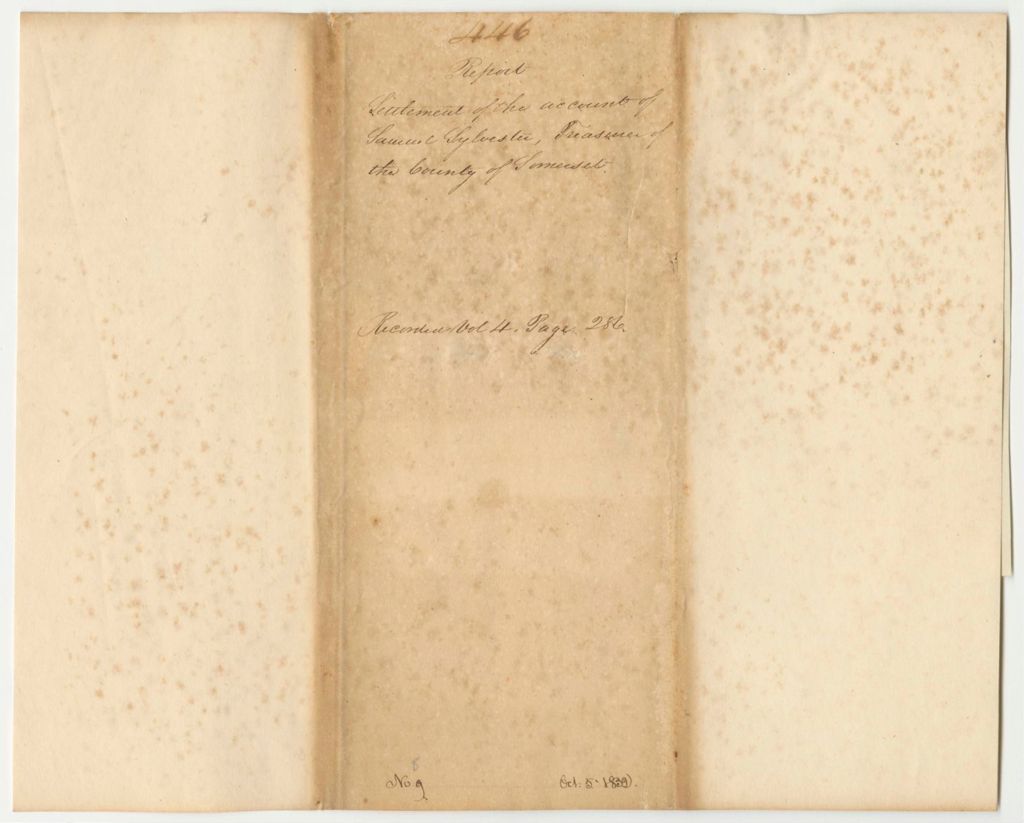 446
Report
Settlement of the accounts of
Samuel Sylvester, Treasurer of
the County of Somerset.
Recorded Vol 4. Page 286
8
No 9 Oct. 5.